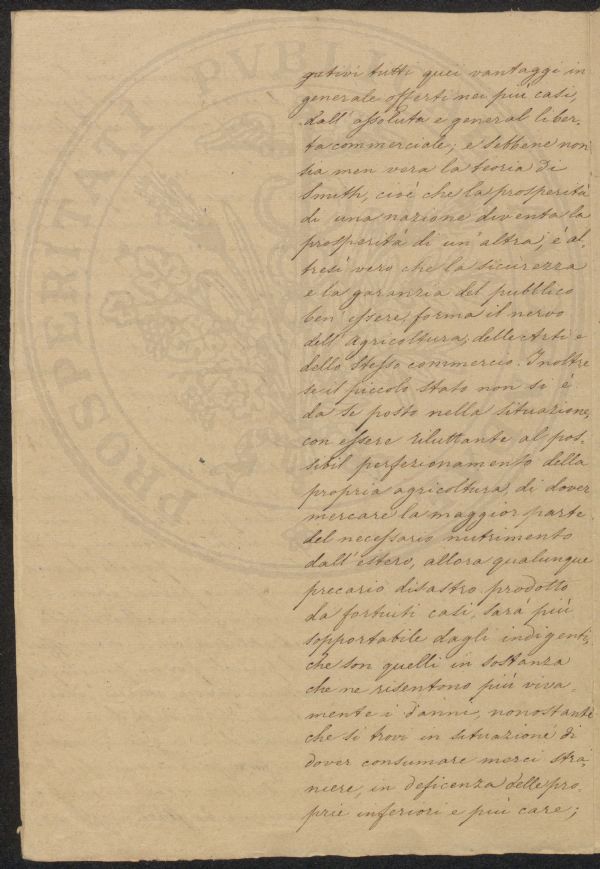 gativi tutti quei vantaggi in
generale offerti nei più casi,
dall' assoluta e general liber-
tà commerciale; e sebbene non
sia men vera la teoria di
Smith, cioè che la prosperità
di una nazione diventa la
prosperità di un' altra, è al-
tresì vero che la sicurezza
e la garanzia del pubblico
ben' essere, forma il nervo
dell' agricoltura, delle Arti e
dello stesso commercio. Inoltre
se il piccolo stato non si è
da se posto nella situazione,
con essere riluttante al pos-
sibil perfezionamento della
propria agricoltura, di dover
mercare la maggior parte
del necessario nutrimento
dall' estero, allora qualunque
precario disastro prodotto
da fortuiti casi, sarà più
sopportabile dagli indigenti,
che son quelli in sostanza
che ne risentono più viva-
mente i danni, nonostante
che si trovi in situazione di
dover consumare merci stra-
niere, in deficenza delle pro-
prie inferiori e più care;
PROSPERITATI PVBLI